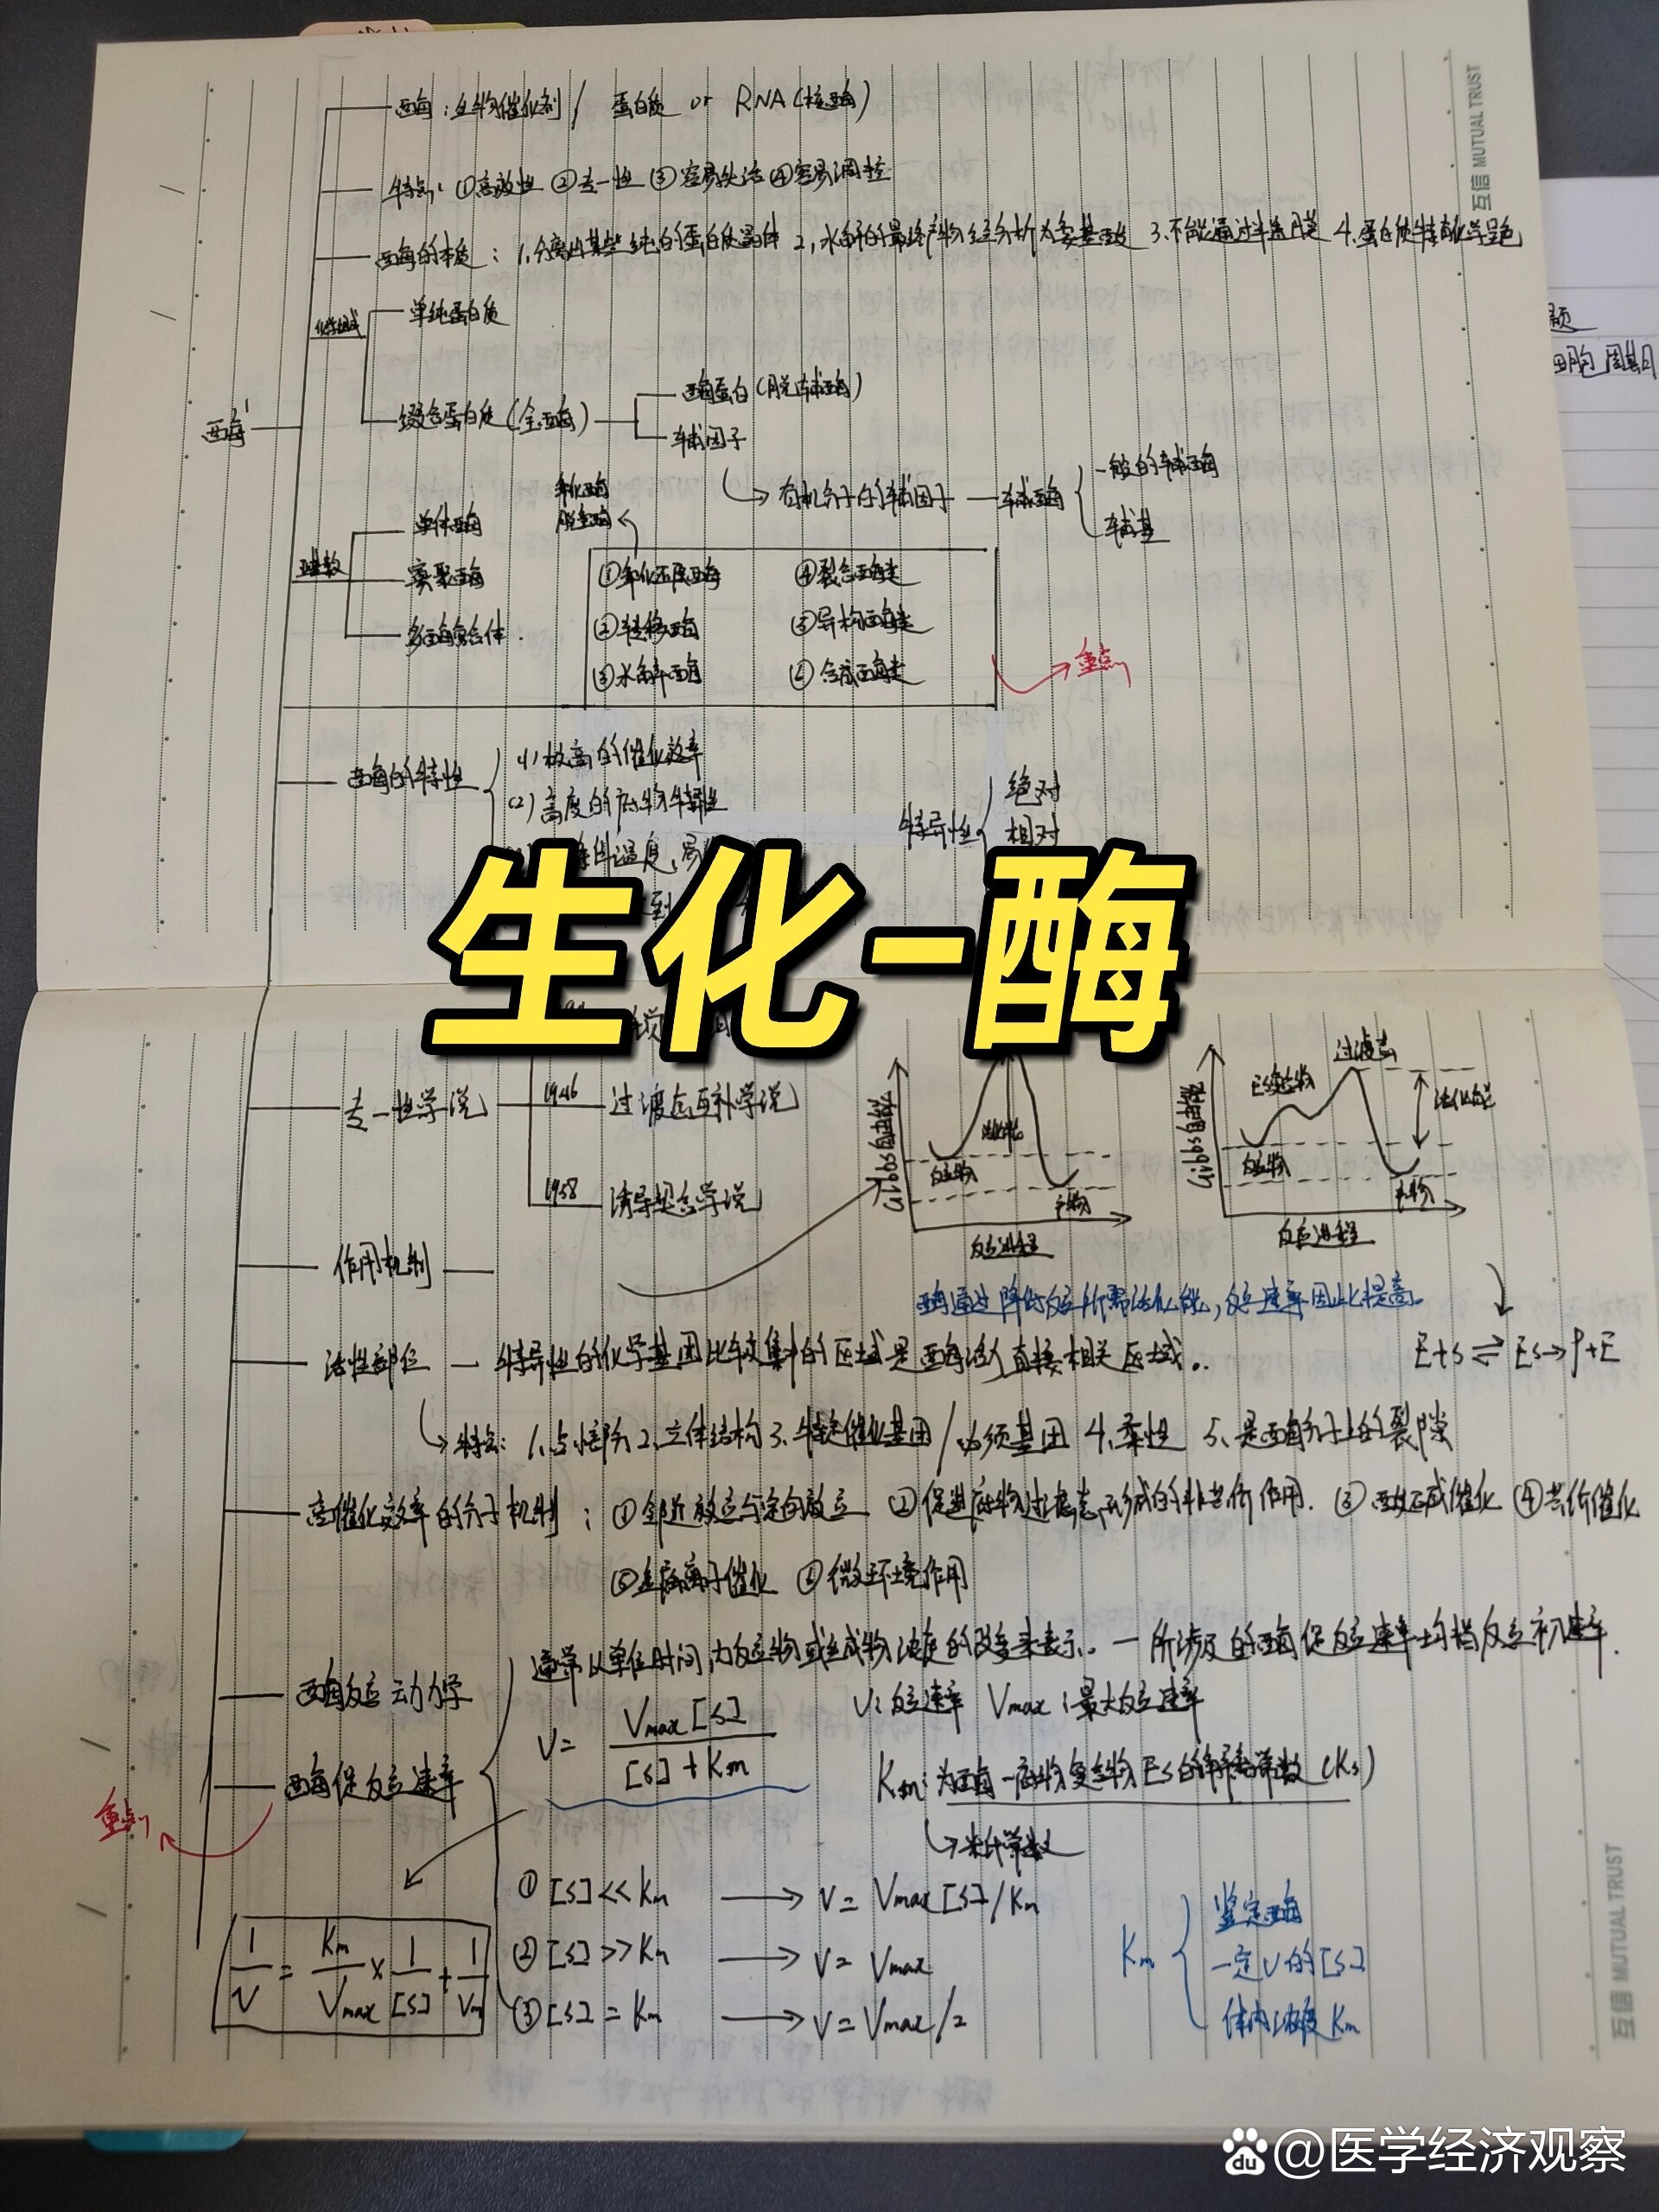 酶：生物催化剂 / 蛋白质 or RNA（核酶）
特点：①高效性 ②专一性 ③容易失活 ④容易调控
酶的本质：1.分离出某些纯的蛋白质晶体 2.水解的最终产物经分析为氨基酸 3.不能通过半透膜 4.蛋白质特有化学呈色
互信 MUTUAL TRUST
题
细胞周期
化学组成
单纯蛋白质
缀合蛋白质（全酶）
酶蛋白（脱辅酶）
辅因子
酶
有机分子的辅因子 — 辅酶
一般的辅酶
辅基
亚基数
单体酶
寡聚酶
多酶复合体
氧化酶
脱氢酶
①氧化还原酶
②转移酶
③水解酶
④裂合酶类
⑤异构酶类
⑥合成酶类
重点
酶的特性
(1) 极高的催化效率
(2) 高度的底物特异性
温度，易
到
特异性
绝对
相对
生化-酶
专一性学说
1946 过渡态互补学说
1958 诱导契合学说
Gibbs自由能
反应物
活化能
产物
反应进程
Gibbs自由能
ES复合物
过渡态
活化能
反应物
产物
反应进程
作用机制
酶通过降低反应所需活化能，反应速率因此提高。
E+S⇌ES→P+E
活性部位 — 特异性的化学基团比较集中的区域是酶活力直接相关区域。
特点：1.占小部分 2.立体结构 3.特定催化基团/必须基团 4.柔性 5.是酶分子上的裂隙
高催化效率的分子机制：①邻近效应与定向效应 ②促进底物过渡态形成的非共价作用. ③酸碱催化 ④共价催化
⑤金属离子催化 ⑥微环境作用
酶反应动力学
酶促反应速率
重点
通常以单位时间内反应物或生成物浓度的改变来表示。— 所涉及的酶促反应速率均指反应初速率.
V= Vmax[S] / [S]+Km
V：反应速率 Vmax：最大反应速率
Km：为酶—底物复合物ES的解离常数（Ks）
米氏常数
①[S]<<Km → V= Vmax[S]/Km
②[S]>>Km → V= Vmax
③[S]=Km → V=Vmax/2
1/V = Km/Vmax × 1/[S] + 1/Vm
Km
鉴定酶
一定V的[S]
体内浓度Km
互信 MUTUAL TRUST
Bai du @医学经济观察